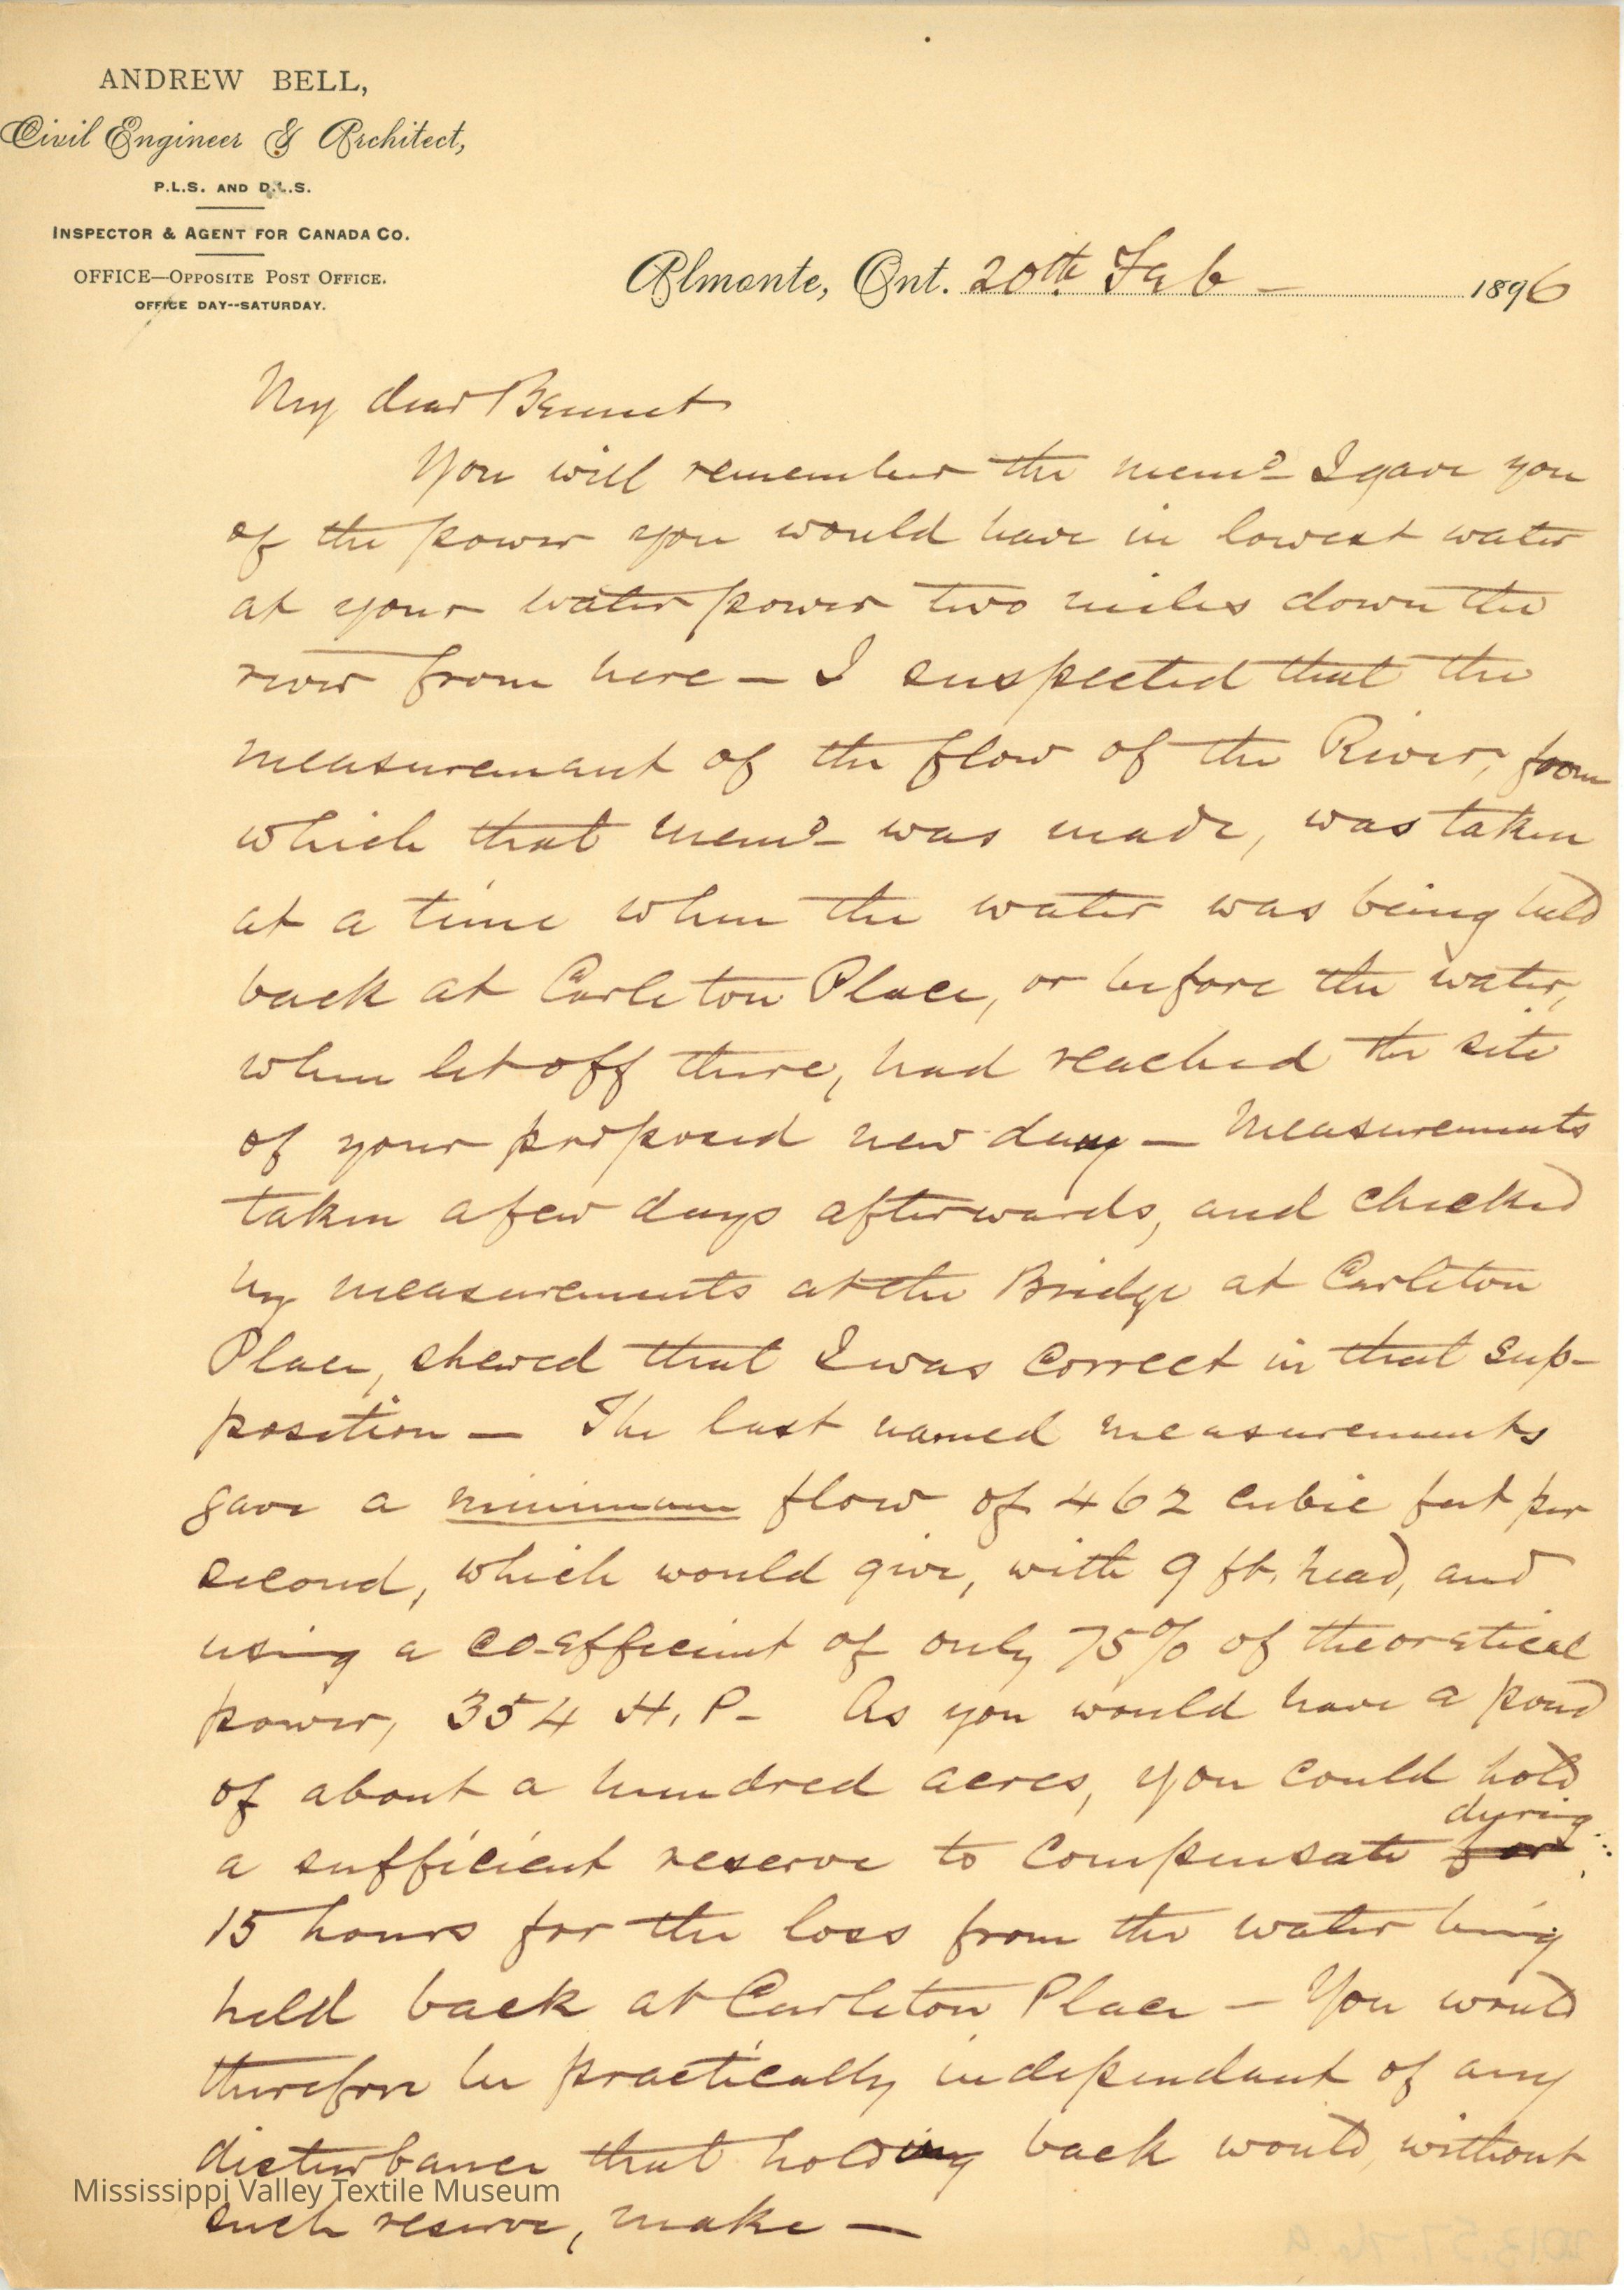 ANDREW BELL,
Civil Engineer & Architect,
P.L.S. AND D.L.S.
INSPECTOR & AGENT FOR CANADA CO.
OFFICE—OPPOSITE POST OFFICE.
OFFICE DAY--SATURDAY.
Almonte, Ont. 20th Feb — 1896
My dear Bennet
You will remember the memo— I gave you
of the power you would have in lowest water
at your water power two miles down the
river from here — I suspected that the
measurement of the flow of the River, from
which that memo— was made, was taken
at a time when the water was being held
back at Carleton Place, or before the water,
when let off there, had reached the site
of your proposed new dam — Measurements
taken a few days afterwards, and checked
by measurements at the Bridge at Carleton
Place, shewed that I was correct in that sup-
position — The last named measurements
gave a minimum flow of 462 cubic feet per
second, which would give, with 9 ft. head, and
using a co-efficient of only 75% of theoretical
power, 354 H.P— As you would have a pond
of about a hundred acres, you could hold
during
a sufficient reserve to compensate for
15 hours for the loss from the water being
held back at Carleton Place — You would
therefore be practically independant of any
disturbance that holding back would, without
Mississippi Valley Textile Museum
such reserve, make —